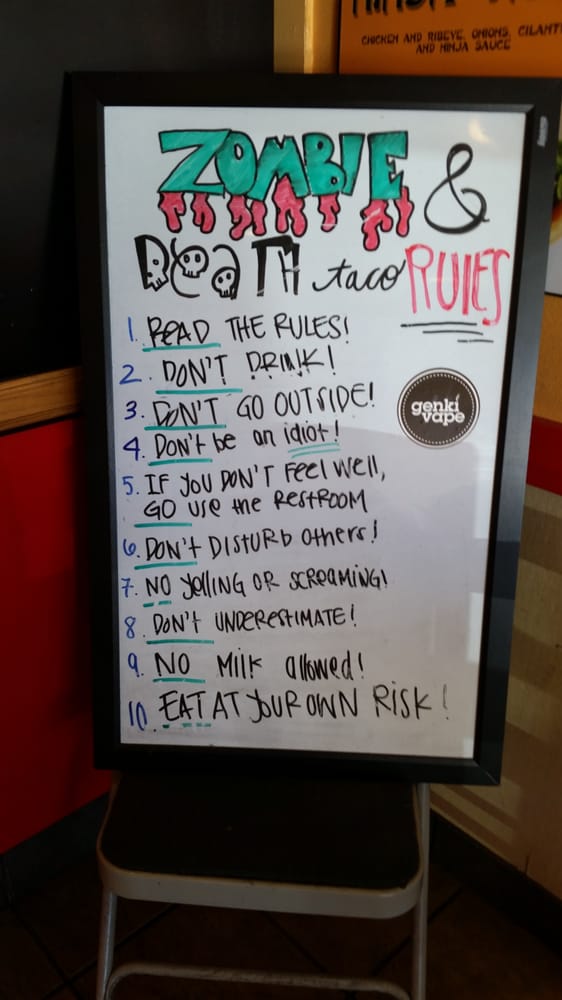 CHICKEN AND RIBEYE, ONIONS, CILANT
AND NINJA SAUCE
ZOMBIE &
DEATH taco RULES
1. READ THE RULES!
2. DON'T DRINK!
3. DON'T GO OUTSIDE!
4. DON't be an idiot!
genki
vape
5. IF YOU DON'T FEEl WEll,
GO USE the RESTROOM
6. DON't DISTURb Others!
7. NO YEllING OR SCREAMING!
8. DON't UNDERESTIMATE!
9. NO MilK allowed!
10. EAT AT YOUR OWN RISK!